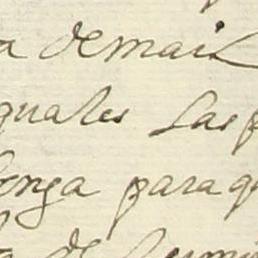 a demais
quales las p
longa para q
de